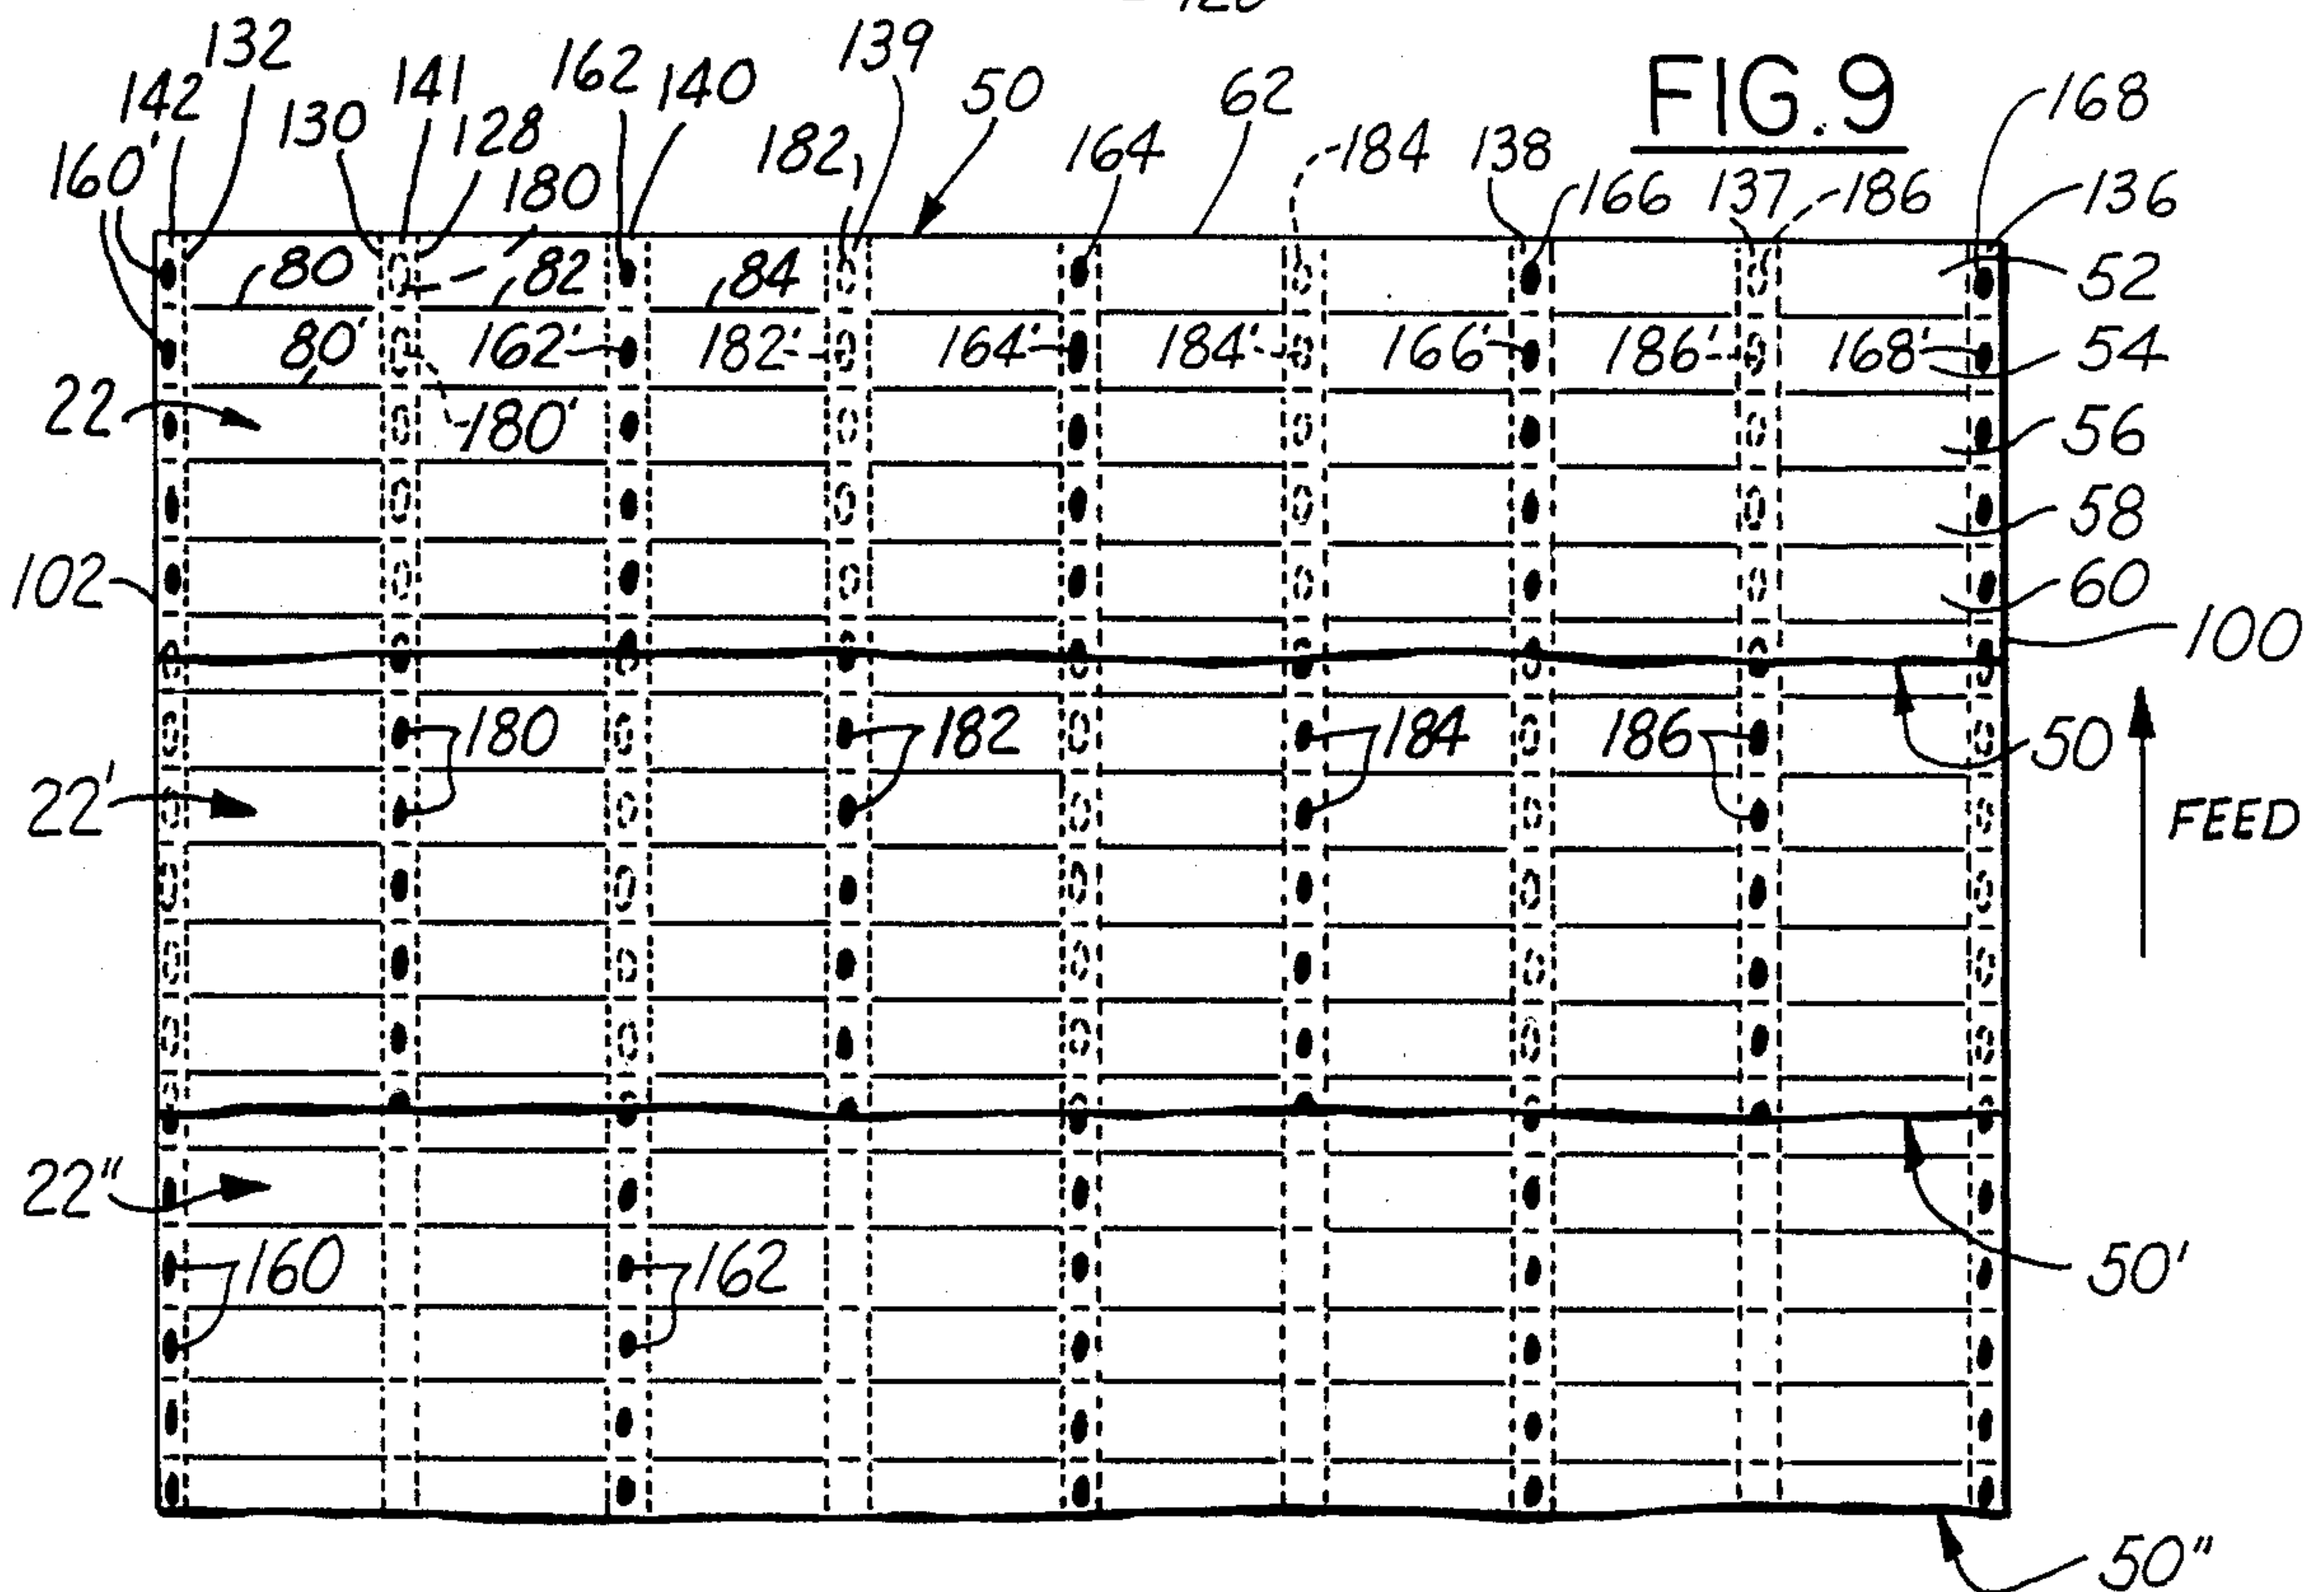 128
FIG. 9
132
142
141
162
140
139
50
62
168
130
128
182
164
184
138
160'
180
166
137
186
136
80
82
84
52
80'
162'
182'
164'
184'
166'
186'
168'
54
22
180'
56
58
102
60
100
180
182
184
186
50
22'
FEED
22"
160
162
50'
50"